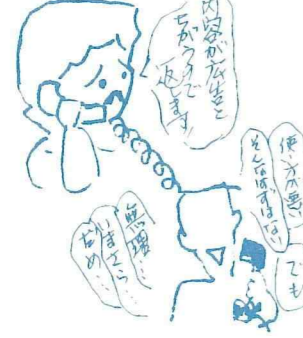 内容が広告と
ちがうので
返します
使い方が悪い
そんなはずはない
でも
無理…
いまさら
だめ…